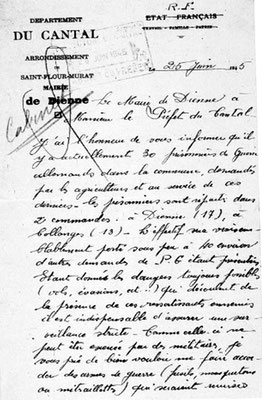 DÉPARTEMENT
DU CANTAL
ARRONDISSEMENT
SAINT-FLOUR-MURAT
MAIRIE
de Dienne
R.F.
ÉTAT FRANÇAIS
TRAVAIL - FAMILLE - PATRIE
Le 25 Juin 5
Le Maire de Dienne à
Monsieur le Préfet du Cantal
J'ai l'honneur de vous informer qu'il
y a actuellement 30 prisonniers de Guerre
allemands dans la commune, demandés
par les agriculteurs et au service de ces
derniers - les prisonniers sont répartis dans
2 commandos : à Dienne (17), à
Collanges (13) - L'effectif me vraisem-
blablement porté sous peu à 40 environ
d'autres demandes de P.G étant présentées
Etant donnés les dangers toujours possibles
(vols, évasions, etc..) qui découlent de
la présence de ces ressortissants ennemis
il est indispensable d'assurer une sur-
veillance stricte - Comme celle ci ne
peut être exercée par des militaires, je
vous prie de bien vouloir me faire accor-
der des armes de guerre (fusils, mousquetons
ou mitraillettes) qui seraient